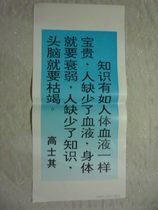 知识有如人体血液一样
宝贵，人缺少了血液，身体
就要衰弱，人缺少了知识，
头脑就要枯竭。
高士其